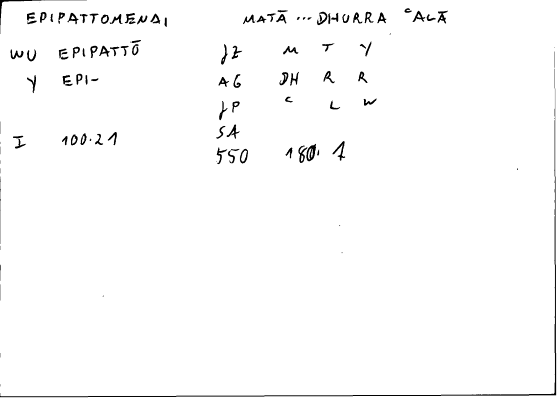 EPIPATTOMENAI MATĀ ... DHURRA ᶜALĀ
WU EPIPATTŌ JZ M T Y
Y EPI- AG DH R R
JP ᶜ L W
I 100.21 SA
550 180. 1